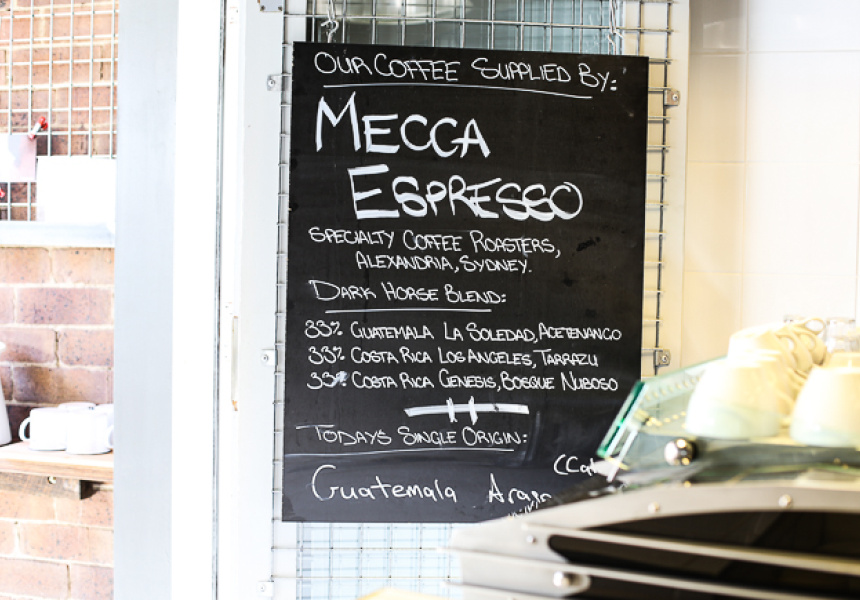 OUR COFFEE SUPPLIED BY:
MECCA
ESPRESSO
SPECIALTY COFFEE ROASTERS,
ALEXANDRIA, SYDNEY.
DARK HORSE BLEND:
33% GUATEMALA LA SOLEDAD, ACETENANGO
33% COSTA RICA LOS ANGELES, TARRAZU
33% COSTA RICA GENESIS, BOSQUE NUBOSO
TODAYS SINGLE ORIGIN:
Guatemala